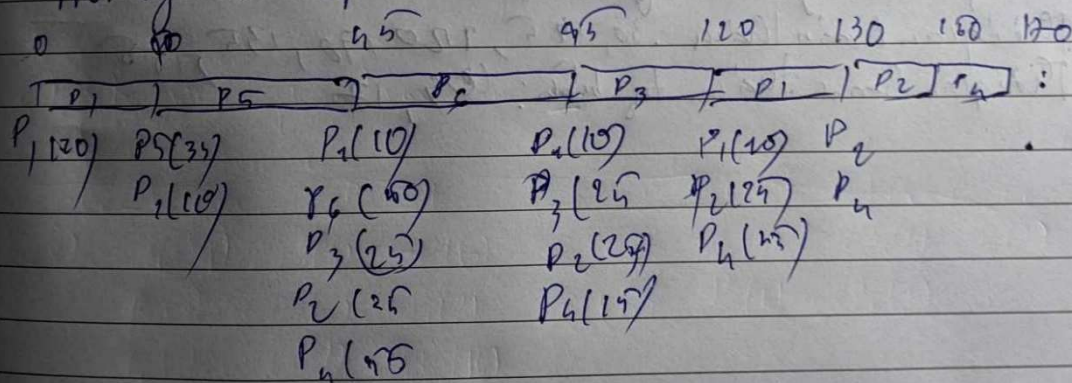 0 45 95 120 130 150 170
P1 P5 P6 P3 P1 P2 P4 :
P1(20) P5(35) P1(10) P1(10) P1(10) P2
P1(10) P6(50) P3(25 P2(25) P4
P3(25) P2(25) P4(15)
P2(25 P4(15)
P4(